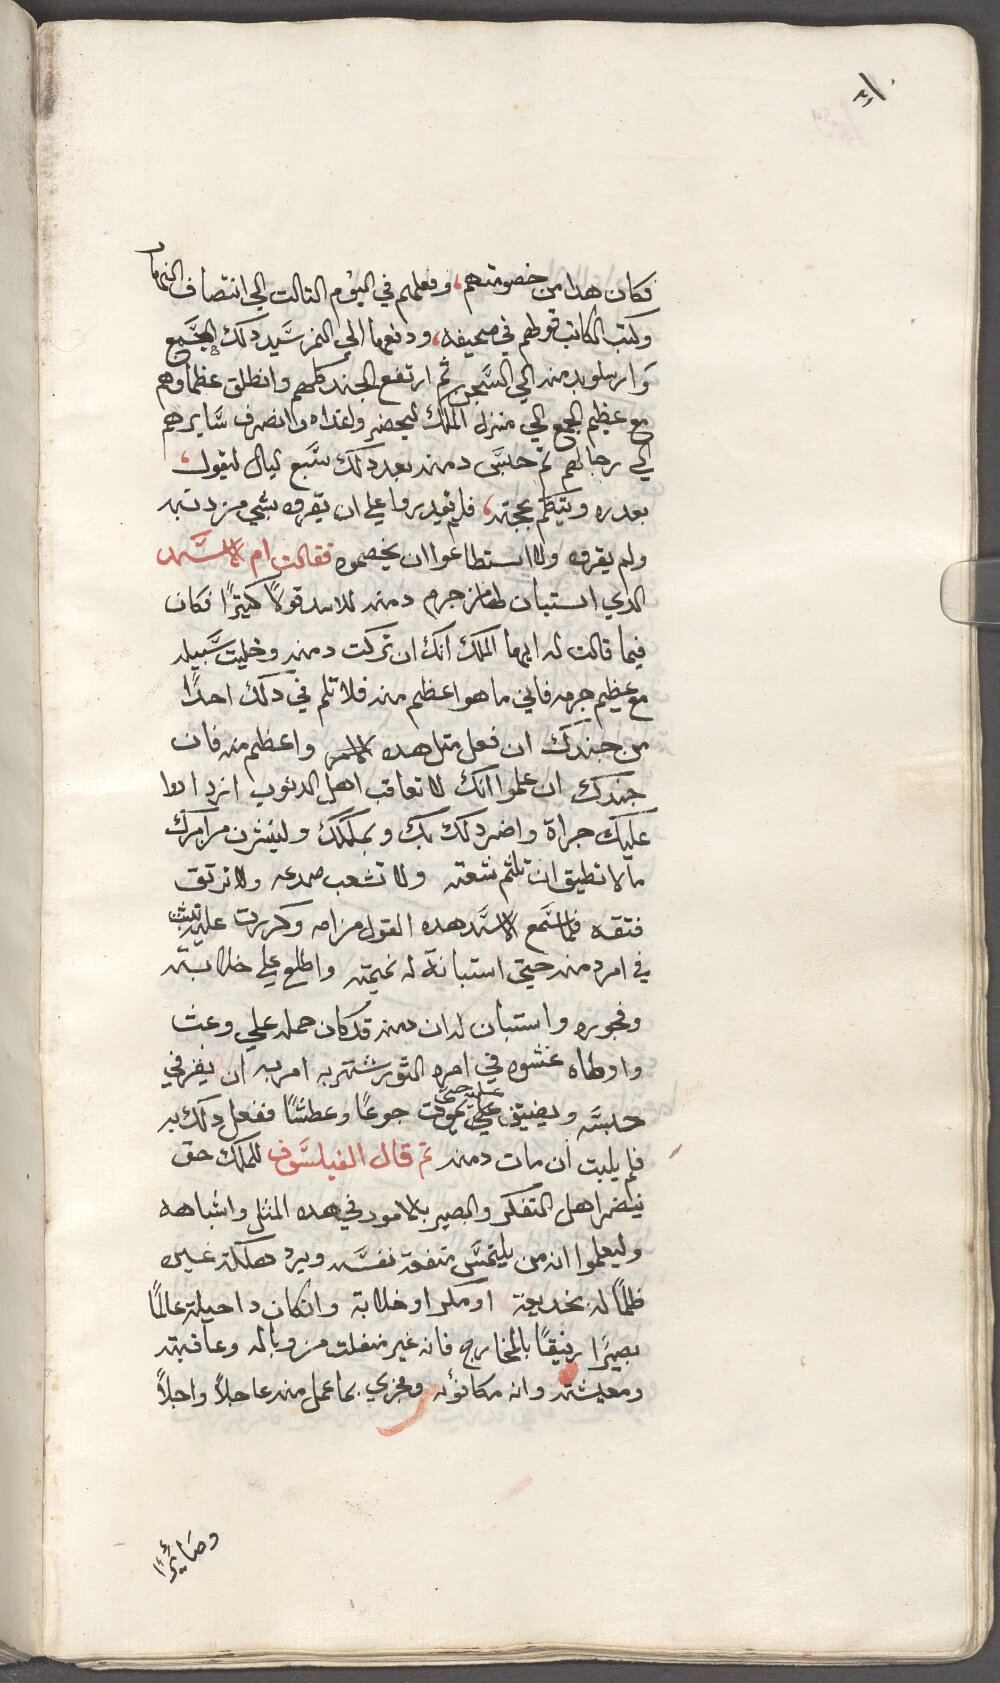 فكان هدا من خصومتهم، وفعلهم في اليوم التالت الي انتصاف النهار
وكتب الكاتب قولهم في صحيفه، ودفعها الي النمر سيد دلك الجمع
وارسلو بدمنه الي السجن ثم ارتفع الجند كلهم وانطلق عظماوهم
مع عظيم الجمع الي منزل الملك ليحضر واغداه وانصرف سايرهم
الي رحالهم تم حبس دمنه بعد دلك سبع ليال ليقول،
بعدره ويتكلم بحجته، فلم يقدروا علي ان يقروه بشي من دنبه
ولم يقره ولا استطاعوا ان يخصموه فقالت ام الاسد
الدي استبان لها من جرم دمنه للاسد قولاً كتيرًا فكان
فيما قالت له ايها الملك انك ان تركت دمنه وخليت سبيله
مع عظيم جرمه فاتي ما هو اعظم منه فلا تلم في دلك احدًا
من جندك ان فعل متل هده الامر واعظم منه فان
جندك ان علموا انك لا تعاقب اهل الدنوب ازدادوا
عليك جراة واضر دلك بك وبملكك ولينشرن من امرك
ما لا تطيق ان تلتم شعته ولا تشعب صدعه ولا ترتق
فتقه فلما سمع الاسد هده القول من امه وكررت عليه
في امر دمنه حتي استبانة له نميمته واطلع علي خلابته
وفجوره واستبان له ان دمنه قد كان حمله علي وعث
واوطاه عشوه في امره التور شتربه امر به ان يفر في
حبسه ويضيق عليه حتي يموت جوعًا وعطشًا ففعل دلك به
فلم يلبت ان مات دمنه تم قال الفيلسوف للملك حق
ينضر اهل التفكر والبصير بالامور في هده المثل واشباهه
وليعلموا انه من يلتمس منفعة نفسه ويرد هلكة غيره
ظلمًا له بخديعة او مكر او خلابة وان كان دا حيلة عالمًا
بصيرًا رفيقًا بالمخارج فانه غير منفلت من وباله وعاقبته
ومعيشته وانه مكافؤه ومجزي بما عمل منه عاجلاً واجلاً
وصايرًا